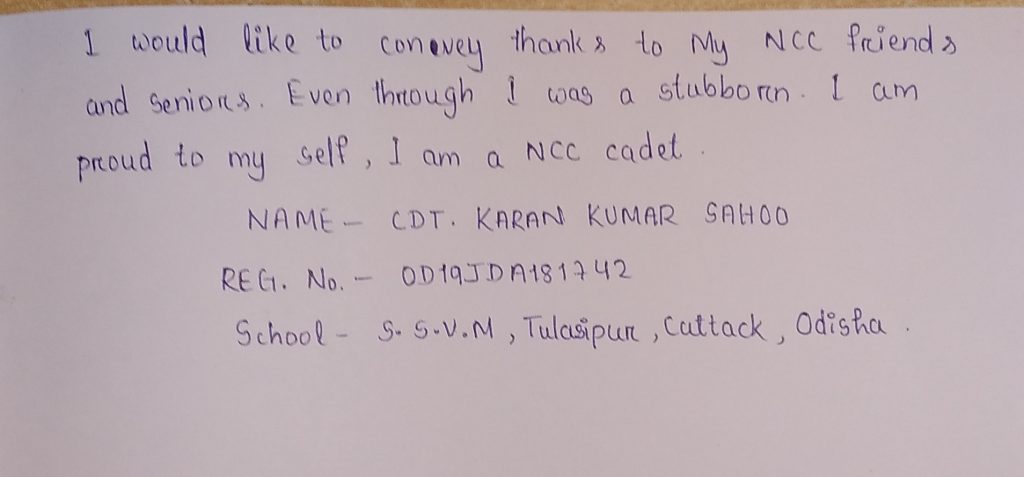 I would like to conevey thanks to My NCC friends
and seniors. Even through I was a stubborn. I am
proud to my self, I am a NCC cadet.
NAME - CDT. KARAN KUMAR SAHOO
REG. No. - OD19JDA181742
School - S.S.V.M, Tulasipur, Cuttack, Odisha.